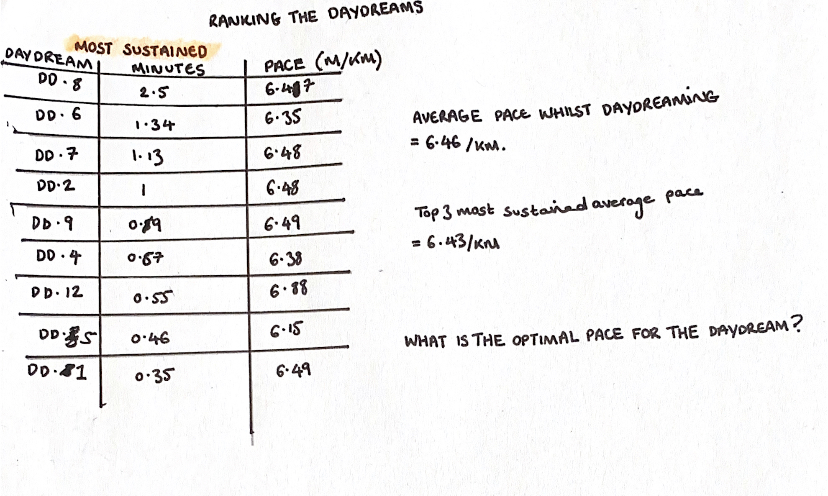 RANKING THE DAYDREAMS
MOST SUSTAINED
DAYDREAM MINUTES PACE (M/KM)
DD.8 2.5 6.47
DD.6 1.34 6.35
DD.7 1.13 6.48
DD.2 1 6.48
DD.9 0.89 6.49
DD.4 0.67 6.38
DD.12 0.55 6.88
DD.5 0.46 6.15
DD.1 0.35 6.49
AVERAGE PACE WHILST DAYDREAMING
= 6.46/KM.
Top 3 most sustained average pace
= 6.43/KM
WHAT IS THE OPTIMAL PACE FOR THE DAYDREAM?